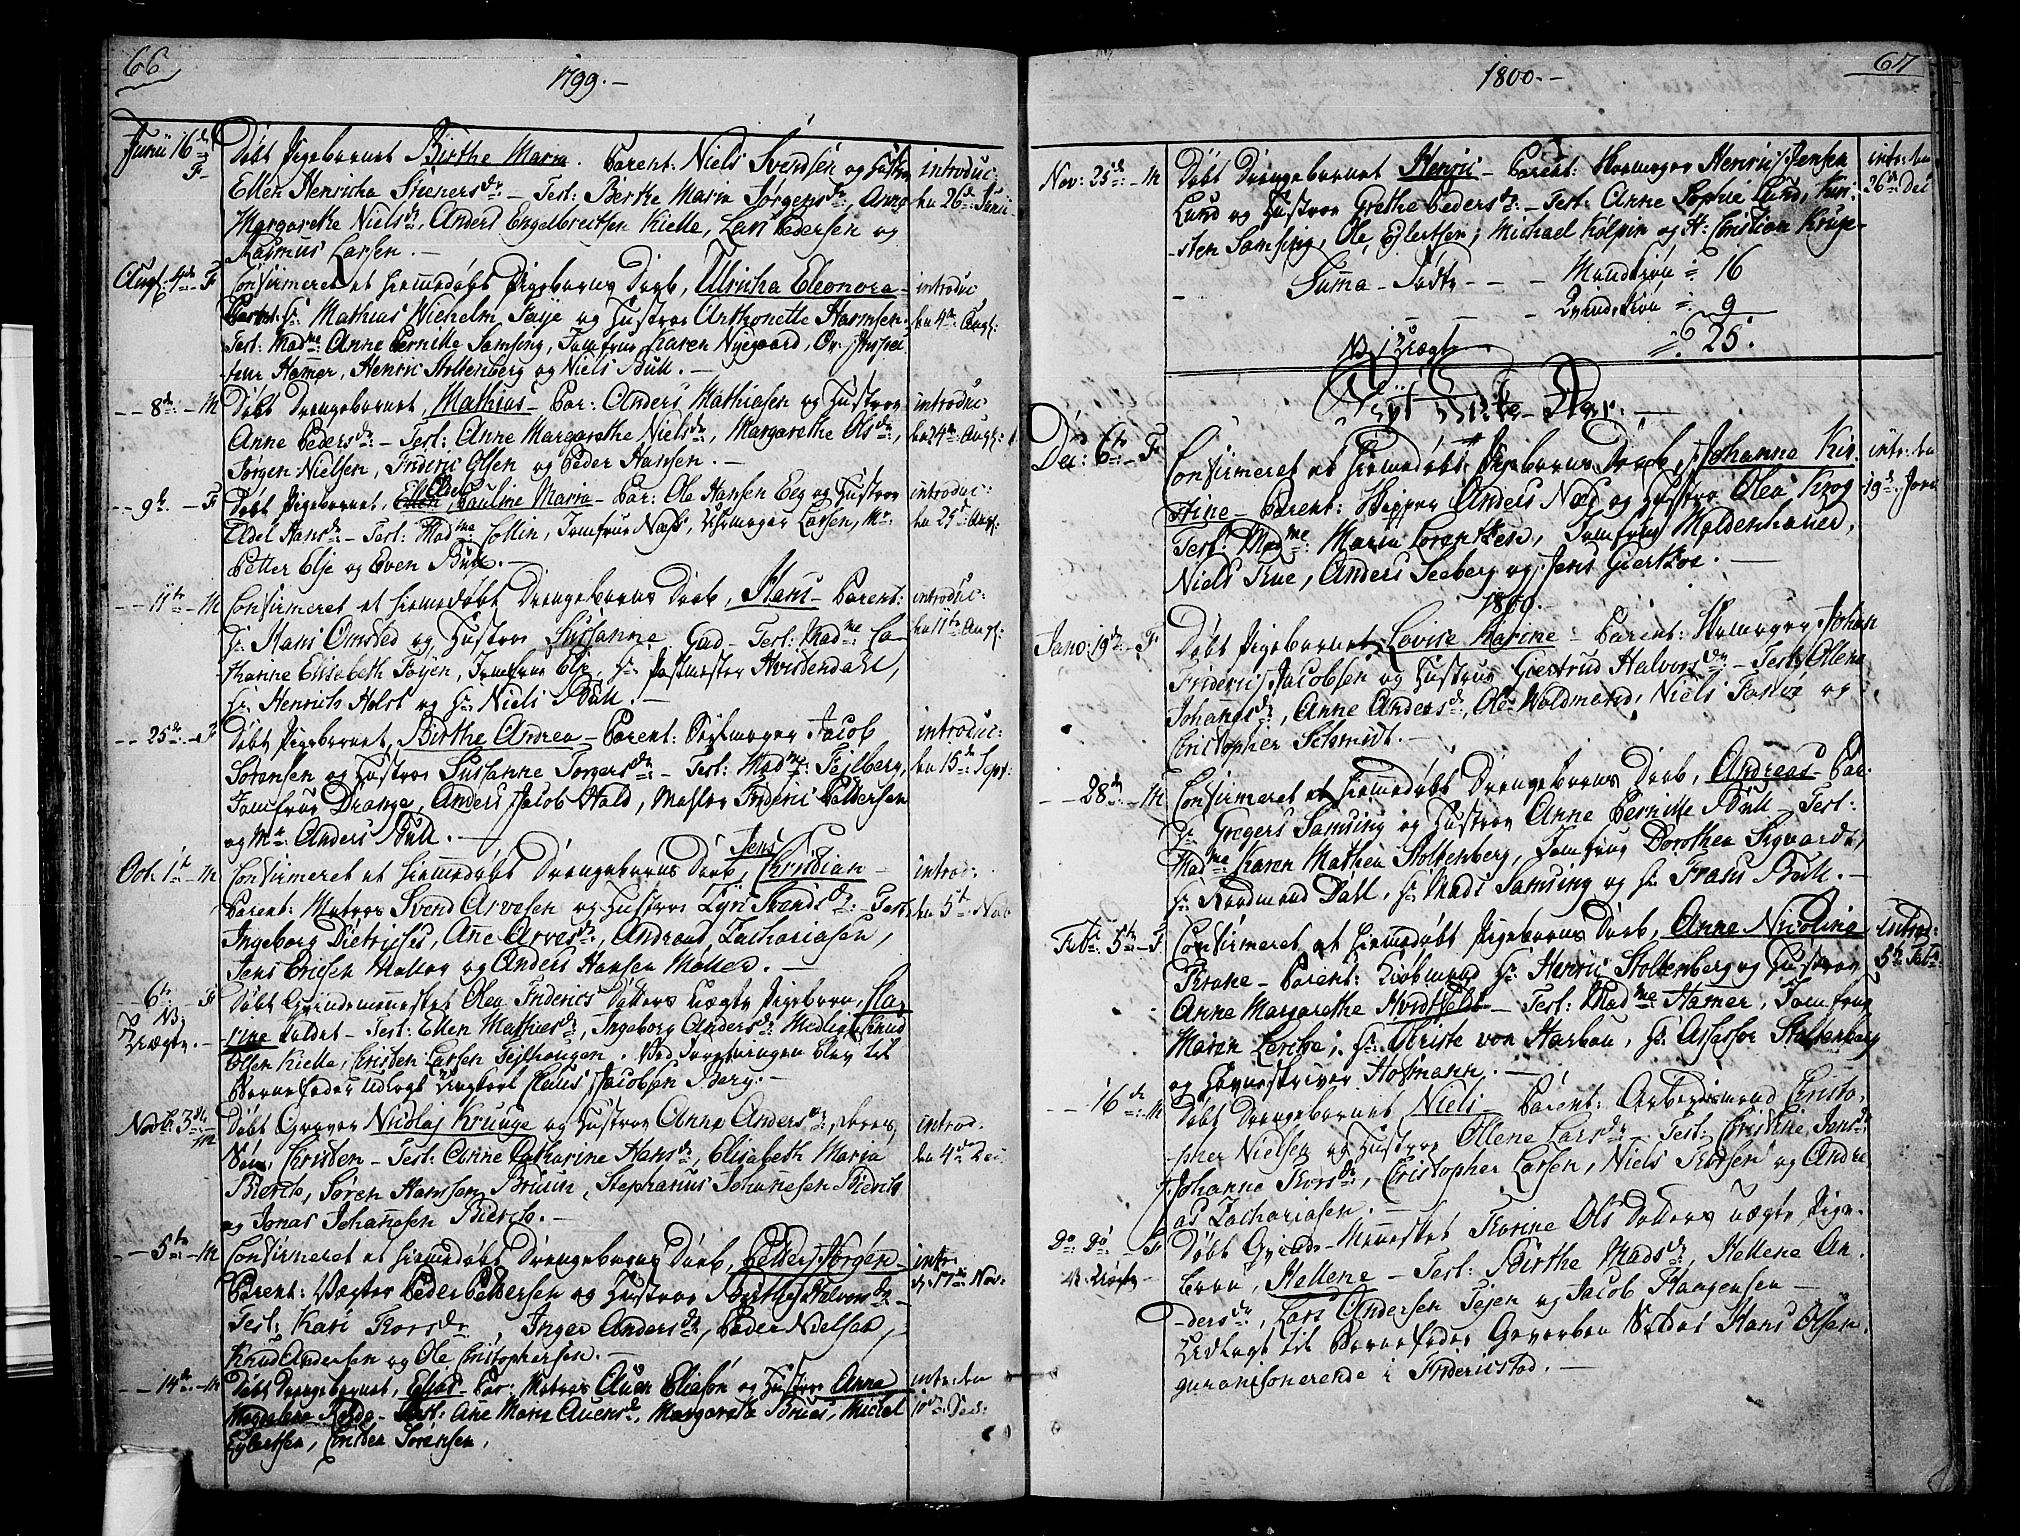 66
1799.-
Junii 16de F
Døbt Pigebarnet Birthe Maria. Parent: Niels Svendsen og Hustru
Ellen Henricha Steenersdr – Test: Berthe Maria Jørgensdr, Anne
Margarethe Nielsdr, Anders Engelbreitsen Kielle, Lars Pedersen og
Rasmus Larsen. –
introduc:
den 26de Junii
Augt: 4de F
Confirmeret et hiemedøbt Pigebarns Daab, Ulricha Eleonora –
Parent: Hr Mathias Wilhelm Føyse og Hustru Anthonette Harmsen
Test: Madme Anne Pernille Samsing, Jomfrue Karen Nyegaard, Ov. Inspec
teur Hamer, Henric Stoltenberg og Niels Bull. –
introduc
den 4de Augt:
– – 8de – M
Døbt Drengebarnet, Mathias – Par: Anders Mathiasen og Hustrue
Anne Pedersdr – Test: Anne Margarethe Nielsdr, Margarethe Olsdr,
Jørgen Nielsen, Frideric Olsen og Peder Hansen. –
introduc
den 24de Augt:
– – 9de – F
Døbt Pigebarnet, Edel Pauline Maria – Par: Ole Hansen Eeg og Hustrue
Edel Hansdr – Test: Madme Collin, Jomfrue Næss, Uhrmager Larsen, Mr
Petter Elje og Even Bull. –
introduc:
den 25de Augt:
– – 11te – M
Confirmeret et hiemedøbt Drengebarns Daab, Hans – Parent:
Hr Hans Omsted og Hustrue Sussanne Gad – Test: Madme Ca-
thrine Elisabeth Føyen, Jomfrue Elje, Hr Postmester Hvistendahl,
Hr Henrich Holst og Hr Niels Bull. –
introduc:
den 11te Augt:
– – 25de – F
Døbt Pigebarnet, Birthe Andrea – Parent: Seylmager Jacob
Sørensen og Hustrue Sussanne Torgersdr – Test: Madme Fejlberg,
Jomfrue Drange, Anders Jacob Hald, Mahler Frideric Pettersen
og Mr Anders Bull. –
introduc:
den 15de Sept:
Oct. 1te M
Confirmeret et hiemedøbt Drengebarns Daab, Jens Christian –
Parent: Matros Svend Arvesen og Hustrue Lisi Svendsdr: Test:
Ingeborg Dietrichs, Ane Arvesdr, Andreas Zachariasen,
Jens Ericsen Møller og Anders Hansen Møller. –
introd:
den 5te Nob
– 6te F
NB.
Uægte. –
Døbt Qvindemennesket Olea Friderics Datters uægte Pigebarn, Kar-
rine kaldet – Test: Ellen Mathiesdr, Ingeborg Andersdr Medlie, Knud
Olsen Kielle, Cristen Larsen Tejlhougen. Ved Forretningen blev til
Barnefader udlagt Ungkarl Claus Jacobsen Berg. –
Novbr. 3de M
Døbt Graver Nicolaj Krunge og Hustrue Anne Andersdr, deres
Søn, Cristen – Test: Anne Catharine Hansdr, Elisabeth Maria
Bierch, Søren Hanssen Bruun, Stephanus Johanesen Bierch
og Jonas Johanesen Bierch. –
introd.
den 4de Dec
– – 5te – M
Confirmeret et hiemedøbt Drengebarns Daab, Petter Jørgen –
Parent: Vægter Peder Pettersen og Hustrue Birthe Halvorsdr –
Test: Kari Thorsdr Inger Andersdr, Peder Nielsen,
Knud Andersen og Ole Cristophersen. –
intr:
d. 17de Nov:
– – 14de – M
Døbt Drengebarnet, Elias – Par: Matros Auen Eliasøn og Hustrue Anna
Magdalena – Test: Ane Maria Auensdr, Margaretha Bruus, Michel
Eylertsen, Cristen Sørensen.
intr: den
10de Dec:
67
1800. –
Nov: 25de – M
Døbt Drengebarnet Henric – Parent: Skoemager Henric Jensen
Lund og Hustrue Grethe Pedersdr – Test: Anne Sophie Lund, Kir-
sten Samsing, Ole Ejlertsen, Michael Kølpin og Hr Cristian Kruge
intr: den
26de Dec
Suma – Fødte – – – Mandkiøn = 16
Qvindekiøn = 9
25.
NB. 1 Uægte
Nyt Kirke-Aar. –
Dec: 6te – F
Confirmeret et hiemedøbt Pigebarns Daab, Johanne Kir-
stine – Parent: Skipper Anders Næss og Hustrue Olea Krog
Test: Madme Maria Lorentzen, Jomfrue Moldenhauer,
Niels Rue, Anders Seeberg og Jens Giertsøe. –
intr: den
19de Janu
1800.
Janv: 19de F
Døbt Pigebarnet, Lovise Marine – Parent: Skomager Johan
Frideric Jacobsen og Hustrue Giertrud Halvorsdr – Test: Ollene
Johansdr, Anne Andersdr, Ole Waldmand, Niels Farsøe og
Cristopher Schmidt. –
– – 28de – M
Confirmeret et hiemedøbt Drengebarns Daab, Andreas – Par:
Hr Gregers Samsing og Hustrue Anne Pernille Bull – Test:
Madme Karen Mathea Stoltenberg, Jomfrue Dorothea Sigvardt,
Hr Raadmand Dall, Hr Mads Samsing og Hr Frans Bull. –
Feb: 5te – F
Confirmeret et hiemedøbt Pigebarns Daab, Anne Nicoline
Krane – Parent: Kiøbmand Hr Henric Stoltenberg og Hustrue
Anne Margarethe Hvidtfeldt – Test: Madme Hamer, Jomfrue
Maren Lerche, Hr Christe von Harbou, Hr Assessor Stoltenberg
og Havneskriver Hofmann. –
introd:
5te Feb:
– – 16de M
Døbt Drengebarnet, Niels – Parent: Arbeidsmand Cristo-
pher Nielsen og Hustrue Ollene Larsdr – Test: Christine Jonsdr
Johanne Thorsdr, Cristopher Larsen, Niels Thorsen og Andre
as Zachariasen. –
Do Do – F
NB. Uægte –
Døbt Qvinde-Mennesket Thorine Ols Datters uægte Pige-
barn, Hellene – Test: Birthe Madsdr, Hellene An-
dersdr, Lars Andersen Tejen og Jacob Haagensen –
Udlagt til Barnefader Gevorben Soldat Hans Olsen
guarnisonerende i Fridericstad. –